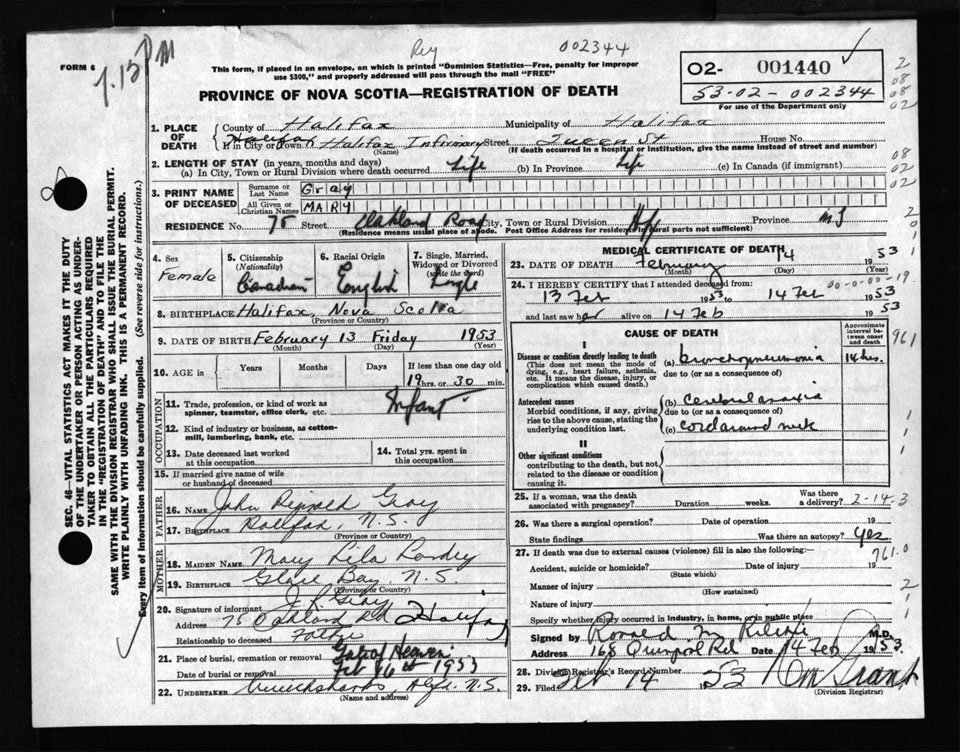 7.15 PM
Rey
002344
FORM 6
This form, if placed in an envelope, on which is printed "Dominion Statistics—Free, penalty for improper
use $300," and properly addressed will pass through the mail "FREE"
PROVINCE OF NOVA SCOTIA—REGISTRATION OF DEATH
02- 001440
53-02-002344
For use of the Department only
2
08
08
02
08
02
02
SEC. 46—VITAL STATISTICS ACT MAKES IT THE DUTY
OF THE UNDERTAKER OR PERSON ACTING AS UNDER-
TAKER TO OBTAIN ALL THE PARTICULARS REQUIRED
IN THE "REGISTRATION OF DEATH" AND TO FILE THE
SAME WITH THE DIVISION REGISTRAR WHO SHALL ISSUE THE BURIAL PERMIT.
WRITE PLAINLY WITH UNFADING INK. THIS IS A PERMANENT RECORD.
Every item of information should be carefully supplied. (See reverse side for instructions.)
1. PLACE OF DEATH
County of Halifax Municipality of Halifax
If in City or Town Halifax Halifax Infirmary Street Queen St House No.
(Name) (If death occurred in a hospital or institution, give the name instead of street and number)
2. LENGTH OF STAY (in years, months and days)
(a) In City, Town or Rural Division where death occurred Life (b) In Province Life (c) In Canada (if immigrant)
3. PRINT NAME OF DECEASED
Surname or Last Name Gray
All Given or Christian Names MARY
RESIDENCE No. 75 Street Oakland Road City, Town or Rural Division Hfx Province N.S
(Residence means usual place of abode. Post Office Address for residents in rural parts not sufficient)
4. Sex Female
5. Citizenship (Nationality) Canadian
6. Racial Origin English
7. Single, Married, Widowed or Divorced (write the word) Single
8. BIRTHPLACE Halifax, Nova Scotia
(Province or Country)
9. DATE OF BIRTH February 13 Friday 1953
(Month) (Day) (Year)
10. AGE in Years Months Days If less than one day old
19 hrs. or 30 min.
OCCUPATION
11. Trade, profession, or kind of work as
spinner, teamster, office clerk, etc. Infant
12. Kind of industry or business, as cotton-
mill, lumbering, bank, etc.
13. Date deceased last worked at this occupation
14. Total yrs. spent in this occupation
15. If married give name of wife or husband of deceased
FATHER
16. Name John Reginald Gray
17. Birthplace Halifax, N.S.
(Province or Country)
MOTHER
18. Maiden Name Mary Lila Landry
19. Birthplace Glace Bay, N.S.
(Province or Country)
20. Signature of informant J. R. Gray
Address 75 Oakland Rd Halifax
Relationship to deceased Father
21. Place of burial, cremation or removal Gate of Heaven
Date of burial or removal Feb 16th 1953
22. Undertaker Cruickshanks Hfx. N.S.
(Name and address)
MEDICAL CERTIFICATE OF DEATH
23. DATE OF DEATH February 14 1953
(Month) (Day) (Year)
24. I HEREBY CERTIFY that I attended deceased from 00-0-00-19
13 Feb 1953 to 14 Feb 1953
and last saw her alive on 14 Feb 1953
CAUSE OF DEATH
Approximate interval between onset and death
961
I
Disease or condition directly leading to death
(This does not mean the mode of dying, e.g., heart failure, asthenia, etc. It means the disease, injury, or complication which caused death.)
(a) bronchopneumonia 14 hrs.
due to (or as a consequence of)
Antecedent causes
Morbid conditions, if any, giving rise to the above cause, stating the underlying condition last.
(b) cerebral anoxia
due to (or as a consequence of)
(c) cord around neck
II
Other significant conditions
contributing to the death, but not related to the disease or condition causing it.
25. If a woman, was the death associated with pregnancy? Duration weeks. Was there a delivery? 2-14-3
26. Was there a surgical operation? Date of operation 19
State findings Was there an autopsy? Yes
27. If death was due to external causes (violence) fill in also the following: 761.0
Accident, suicide or homicide? Date of injury 19
(State which)
Manner of injury
(How sustained)
Nature of injury
Specify whether injury occurred in industry, in home, or in public place
Signed by Ronald M. M.D.
Address 168 Quinpool Rd Date 14 Feb 1953
28. Division Registrar's Record Number
29. Filed Feb 14 1953 Grant
(Division Registrar)